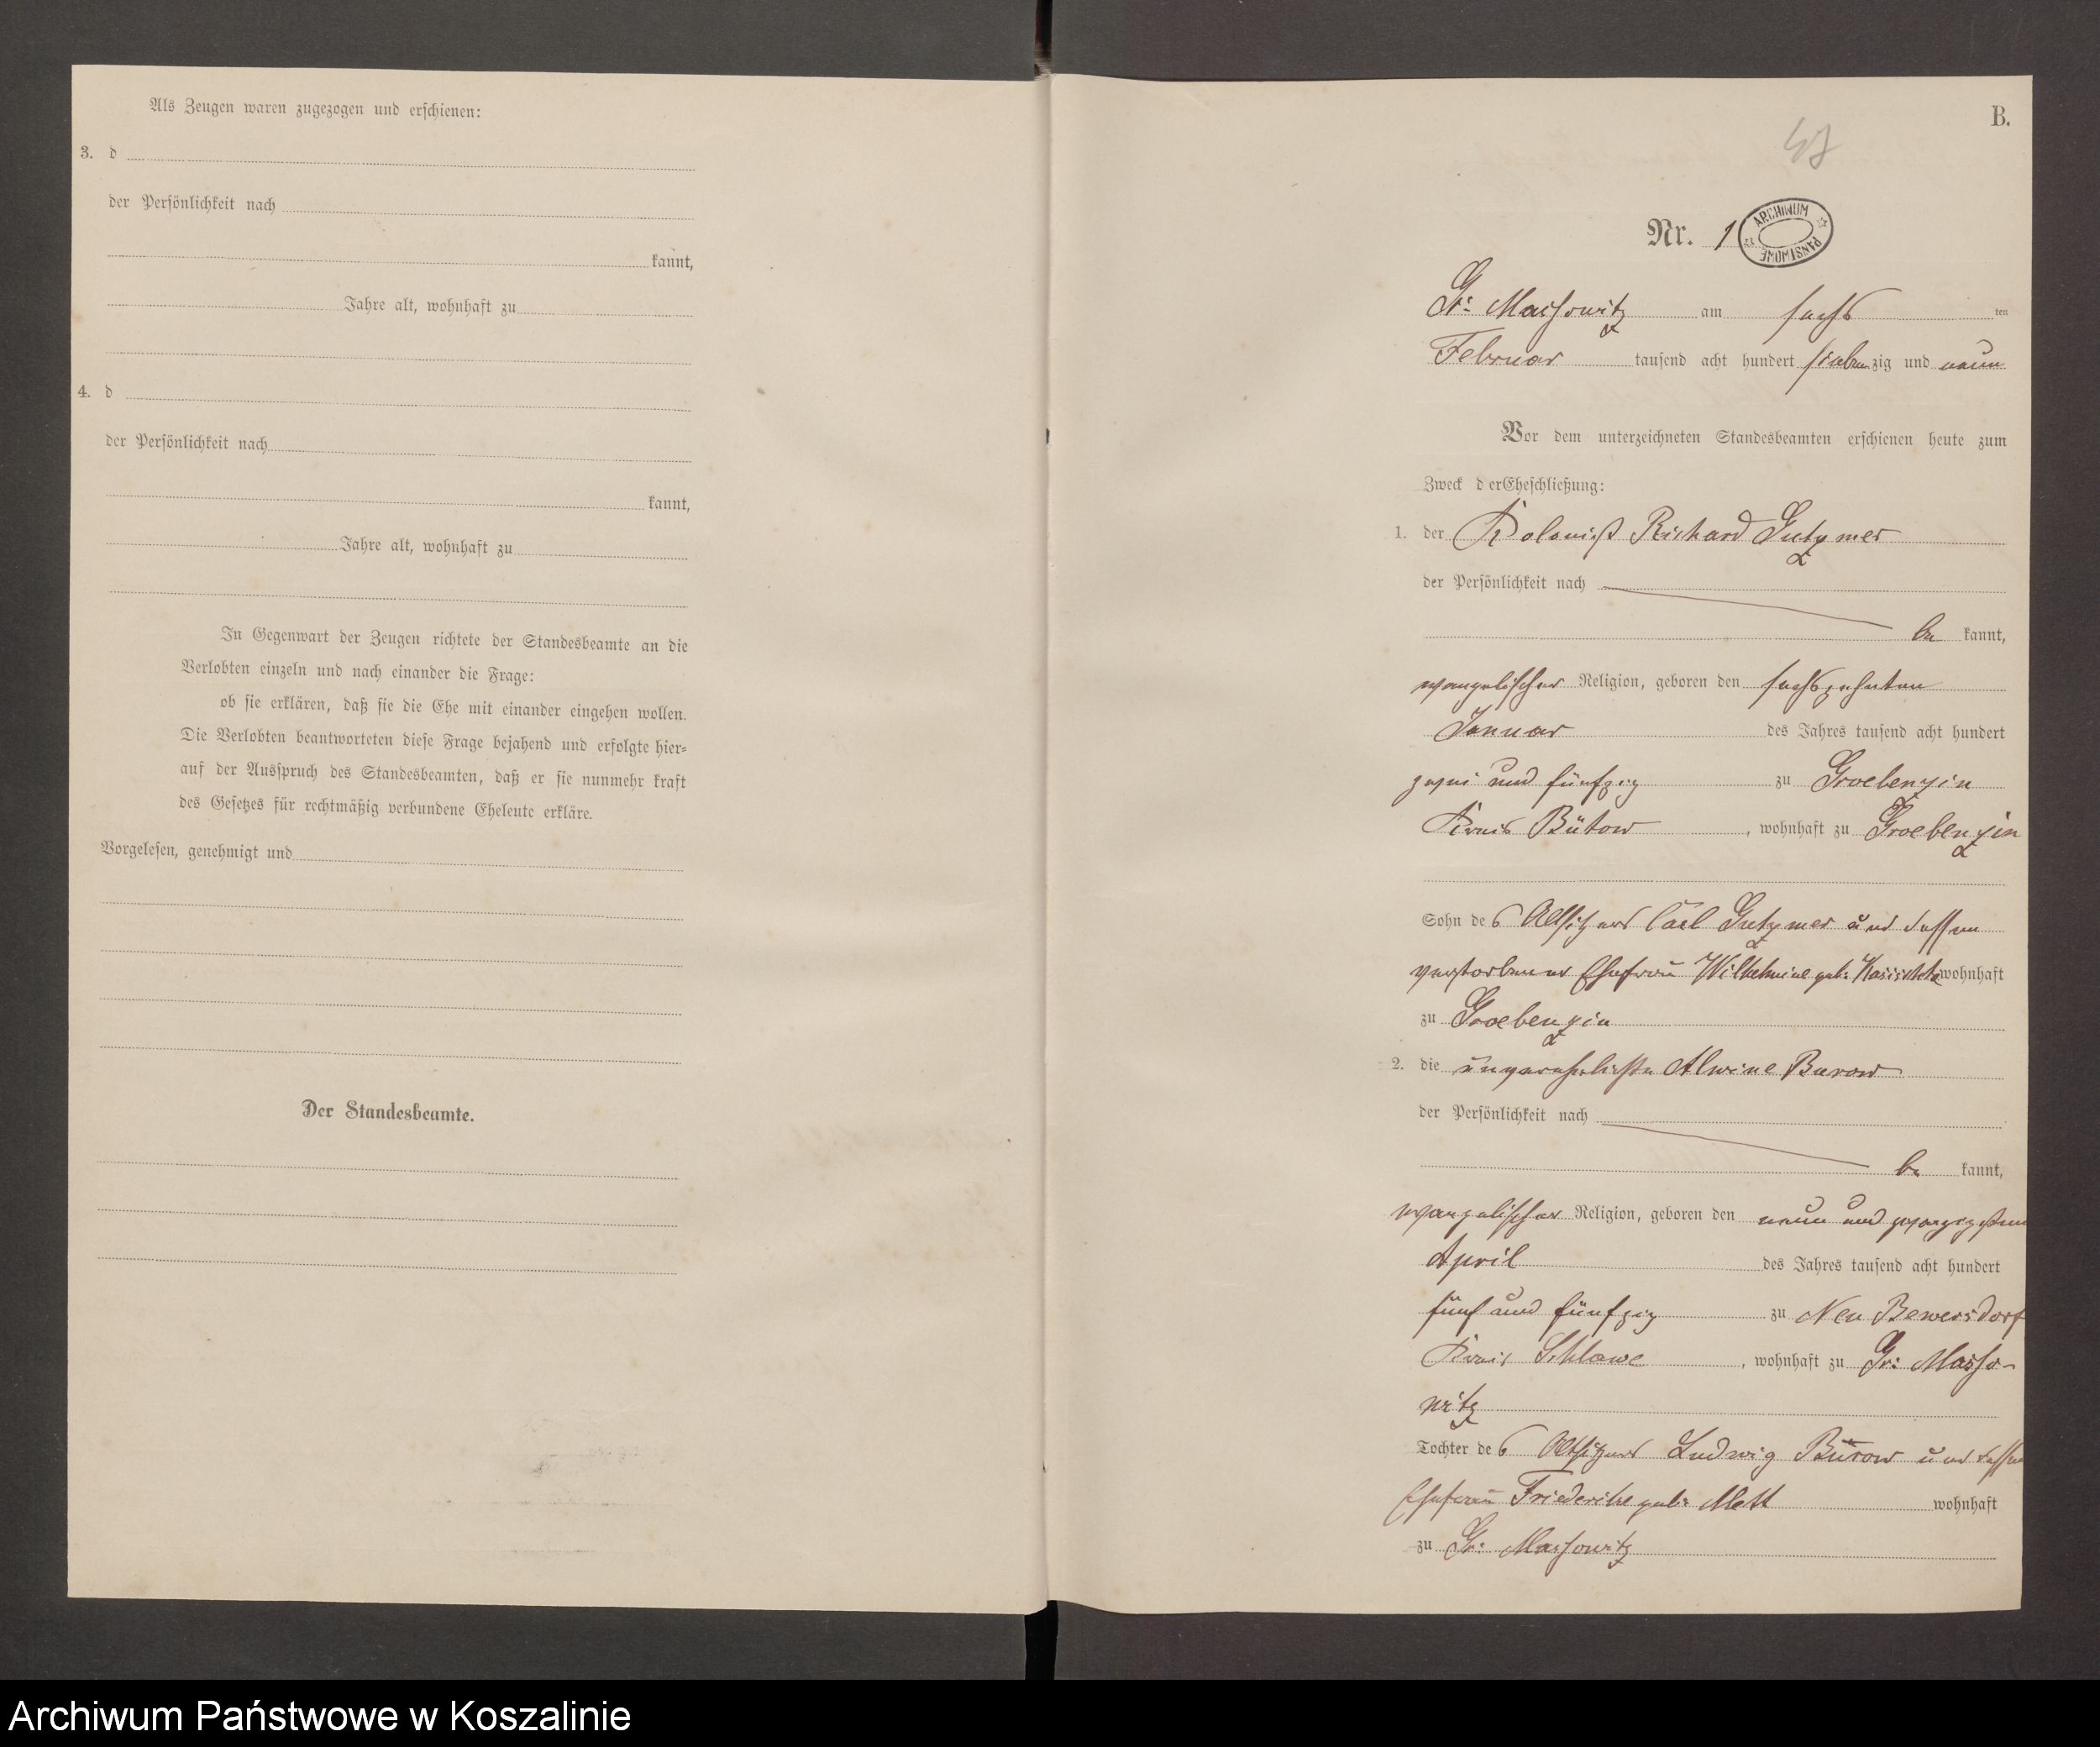 Als Zeugen waren zugezogen und erschienen:
3. d
der Persönlichkeit nach
kannt,
Jahre alt, wohnhaft zu
4. d
der Persönlichkeit nach
kannt,
Jahre alt, wohnhaft zu
In Gegenwart der Zeugen richtete der Standesbeamte an die
Verlobten einzeln und nach einander die Frage:
ob sie erklären, daß sie die Ehe mit einander eingehen wollen.
Die Verlobten beantworteten diese Frage bejahend und erfolgte hier-
auf der Ausspruch des Standesbeamten, daß er sie nunmehr kraft
des Gesetzes für rechtmäßig verbundene Eheleute erkläre.
Vorgelesen, genehmigt und
Der Standesbeamte.
B.
Nr. 1
ARCHIWUM PAŃSTWOWE
Gr: Massowitz am sechs ten
Februar tausend acht hundert siebenzig und neun
Vor dem unterzeichneten Standesbeamten erschienen heute zum
Zweck der Eheschließung:
1. der Kolonist Richard Gutzmer
der Persönlichkeit nach
be kannt,
evangelischer Religion, geboren den sechszehnten
Januar des Jahres tausend acht hundert
zwei und fünfzig zu Groebenzin
Kreis Bütow, wohnhaft zu Groebenzin
Sohn des Altsitzers Carl Gutzmer und dessen
verstorbener Ehefrau Wilhelmine geb: wohnhaft
zu Groebenzin
2. die unverehelichte Alwine Burow
der Persönlichkeit nach
be kannt,
evangelischer Religion, geboren den neun und zwanzigsten
April des Jahres tausend acht hundert
fünf und fünfzig zu Neu Bewersdorf
Kreis Schlawe, wohnhaft zu Gr: Masso-
witz
Tochter des Altsitzers Ludwig Burow und dessen
Ehefrau Friederike geb: wohnhaft
zu Gr: Massowitz
Archiwum Państwowe w Koszalinie